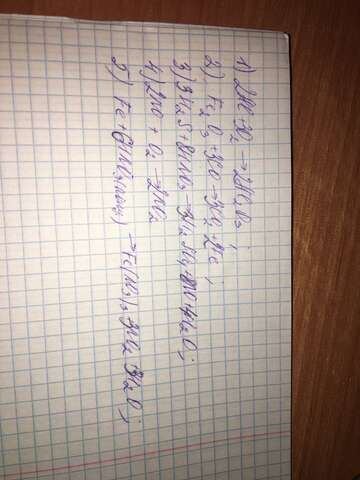 1) 2Al + 3O2 → 2Al2O3;
2) Fe2O3 + 3CO → 3CO2 + 2Fe;
3) 3H2S + 8HNO3 → 3H2SO4 + 8NO + 4H2O;
4) 2NO + O2 → 2NO2
5) Fe + 6HNO3 → Fe(NO3)3 + 3NO2 + 3H2O;